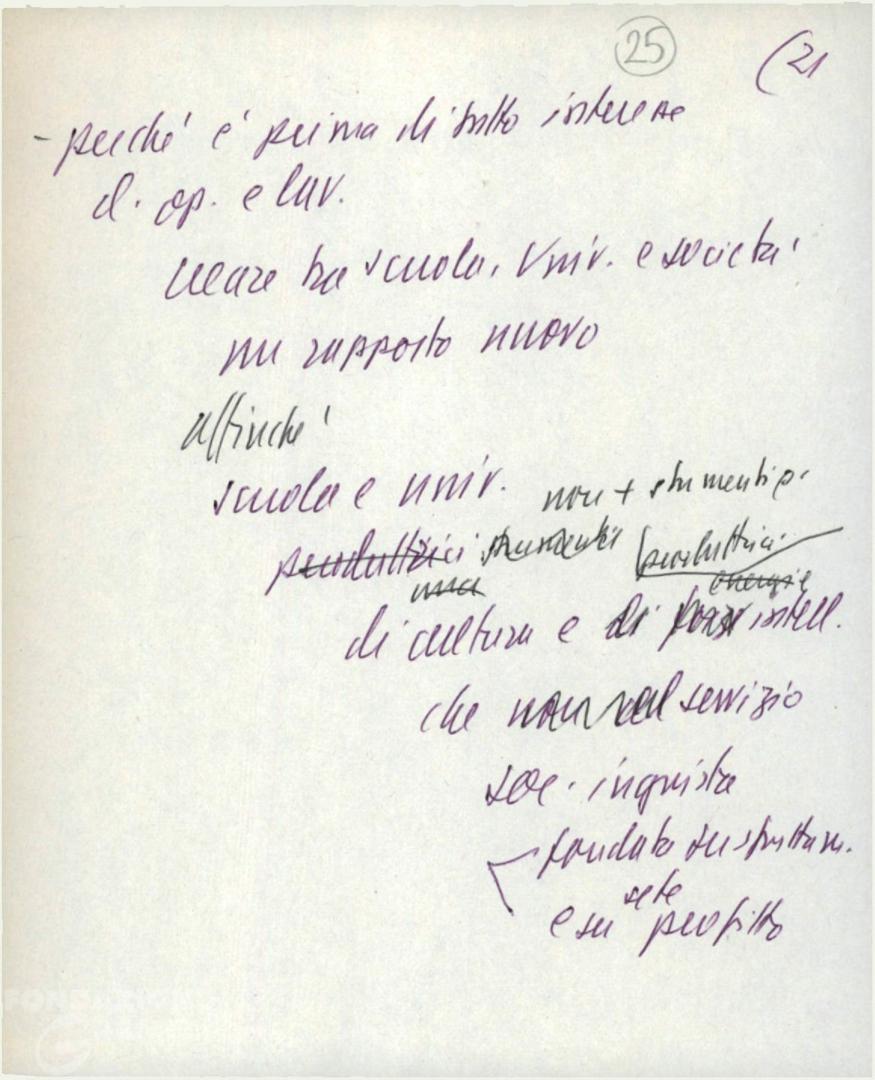 25 (21
- perché é prima di tutto interesse
d. op. e lav.
creare tra scuola, Univ. e società
un rapporto nuovo
affinché
scuola e univ. non + strumenti p.
produttrici strumenti produttrici
energie
di cultura e di forze intell.
che non al servizio
soc. ingiusta
fondata su sfruttam.
e su sete profitto
FONDAZIONE